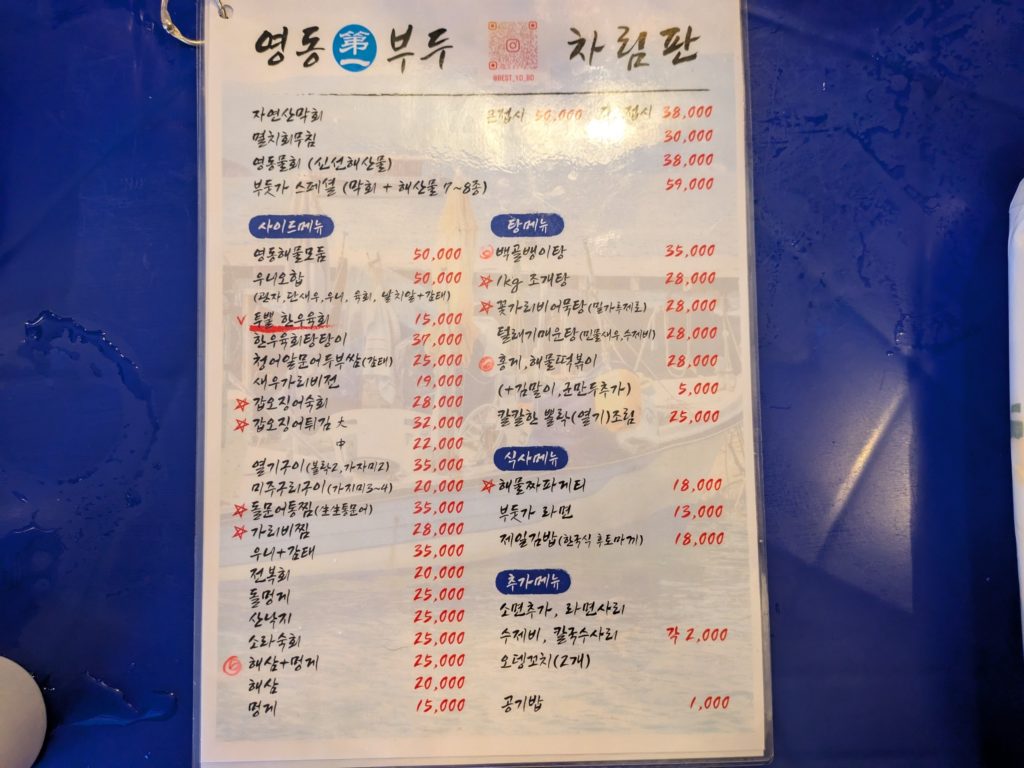 영동 第一 부두 차림판
@BEST_YD_BD
자연산막회 큰접시 50,000 접시 38,000
멸치회무침 30,000
영동물회 (신선해산물) 38,000
부둣가 스페셜 (막회 + 해산물 7~8종) 59,000
사이드메뉴
영동해물모듬 50,000
우니오합 50,000
(관자,단새우,우니, 육회, 날치알+감태)
투뿔 한우육회 15,000
한우육회탕탕이 37,000
청어알문어두부쌈(감태) 25,000
새우가리비전 19,000
갑오징어숙회 28,000
갑오징어튀김 大 32,000
中 22,000
열기구이(볼락2,가자미2) 35,000
미주구리구이(가자미3~4) 20,000
돌문어통찜(生生통문어) 35,000
가리비찜 28,000
우니+감태 35,000
전복회 20,000
돌멍게 25,000
산낙지 25,000
소라숙회 25,000
해삼+멍게 25,000
해삼 20,000
멍게 15,000
탕메뉴
백골뱅이탕 35,000
1kg 조개탕 28,000
꽃가리비어묵탕(밀가루제로) 28,000
털래기매운탕(민물새우,수제비) 28,000
홍게,해물떡볶이 28,000
(+김말이,군만두추가) 5,000
칼칼한 뽈락(열기)조림 25,000
식사메뉴
해물짜파게티 18,000
부둣가 라면 13,000
제일김밥(한국식 후토마끼) 18,000
추가메뉴
소면추가, 라면사리
수제비, 칼국수사리 각 2,000
오뎅꼬치(2개)
공기밥 1,000